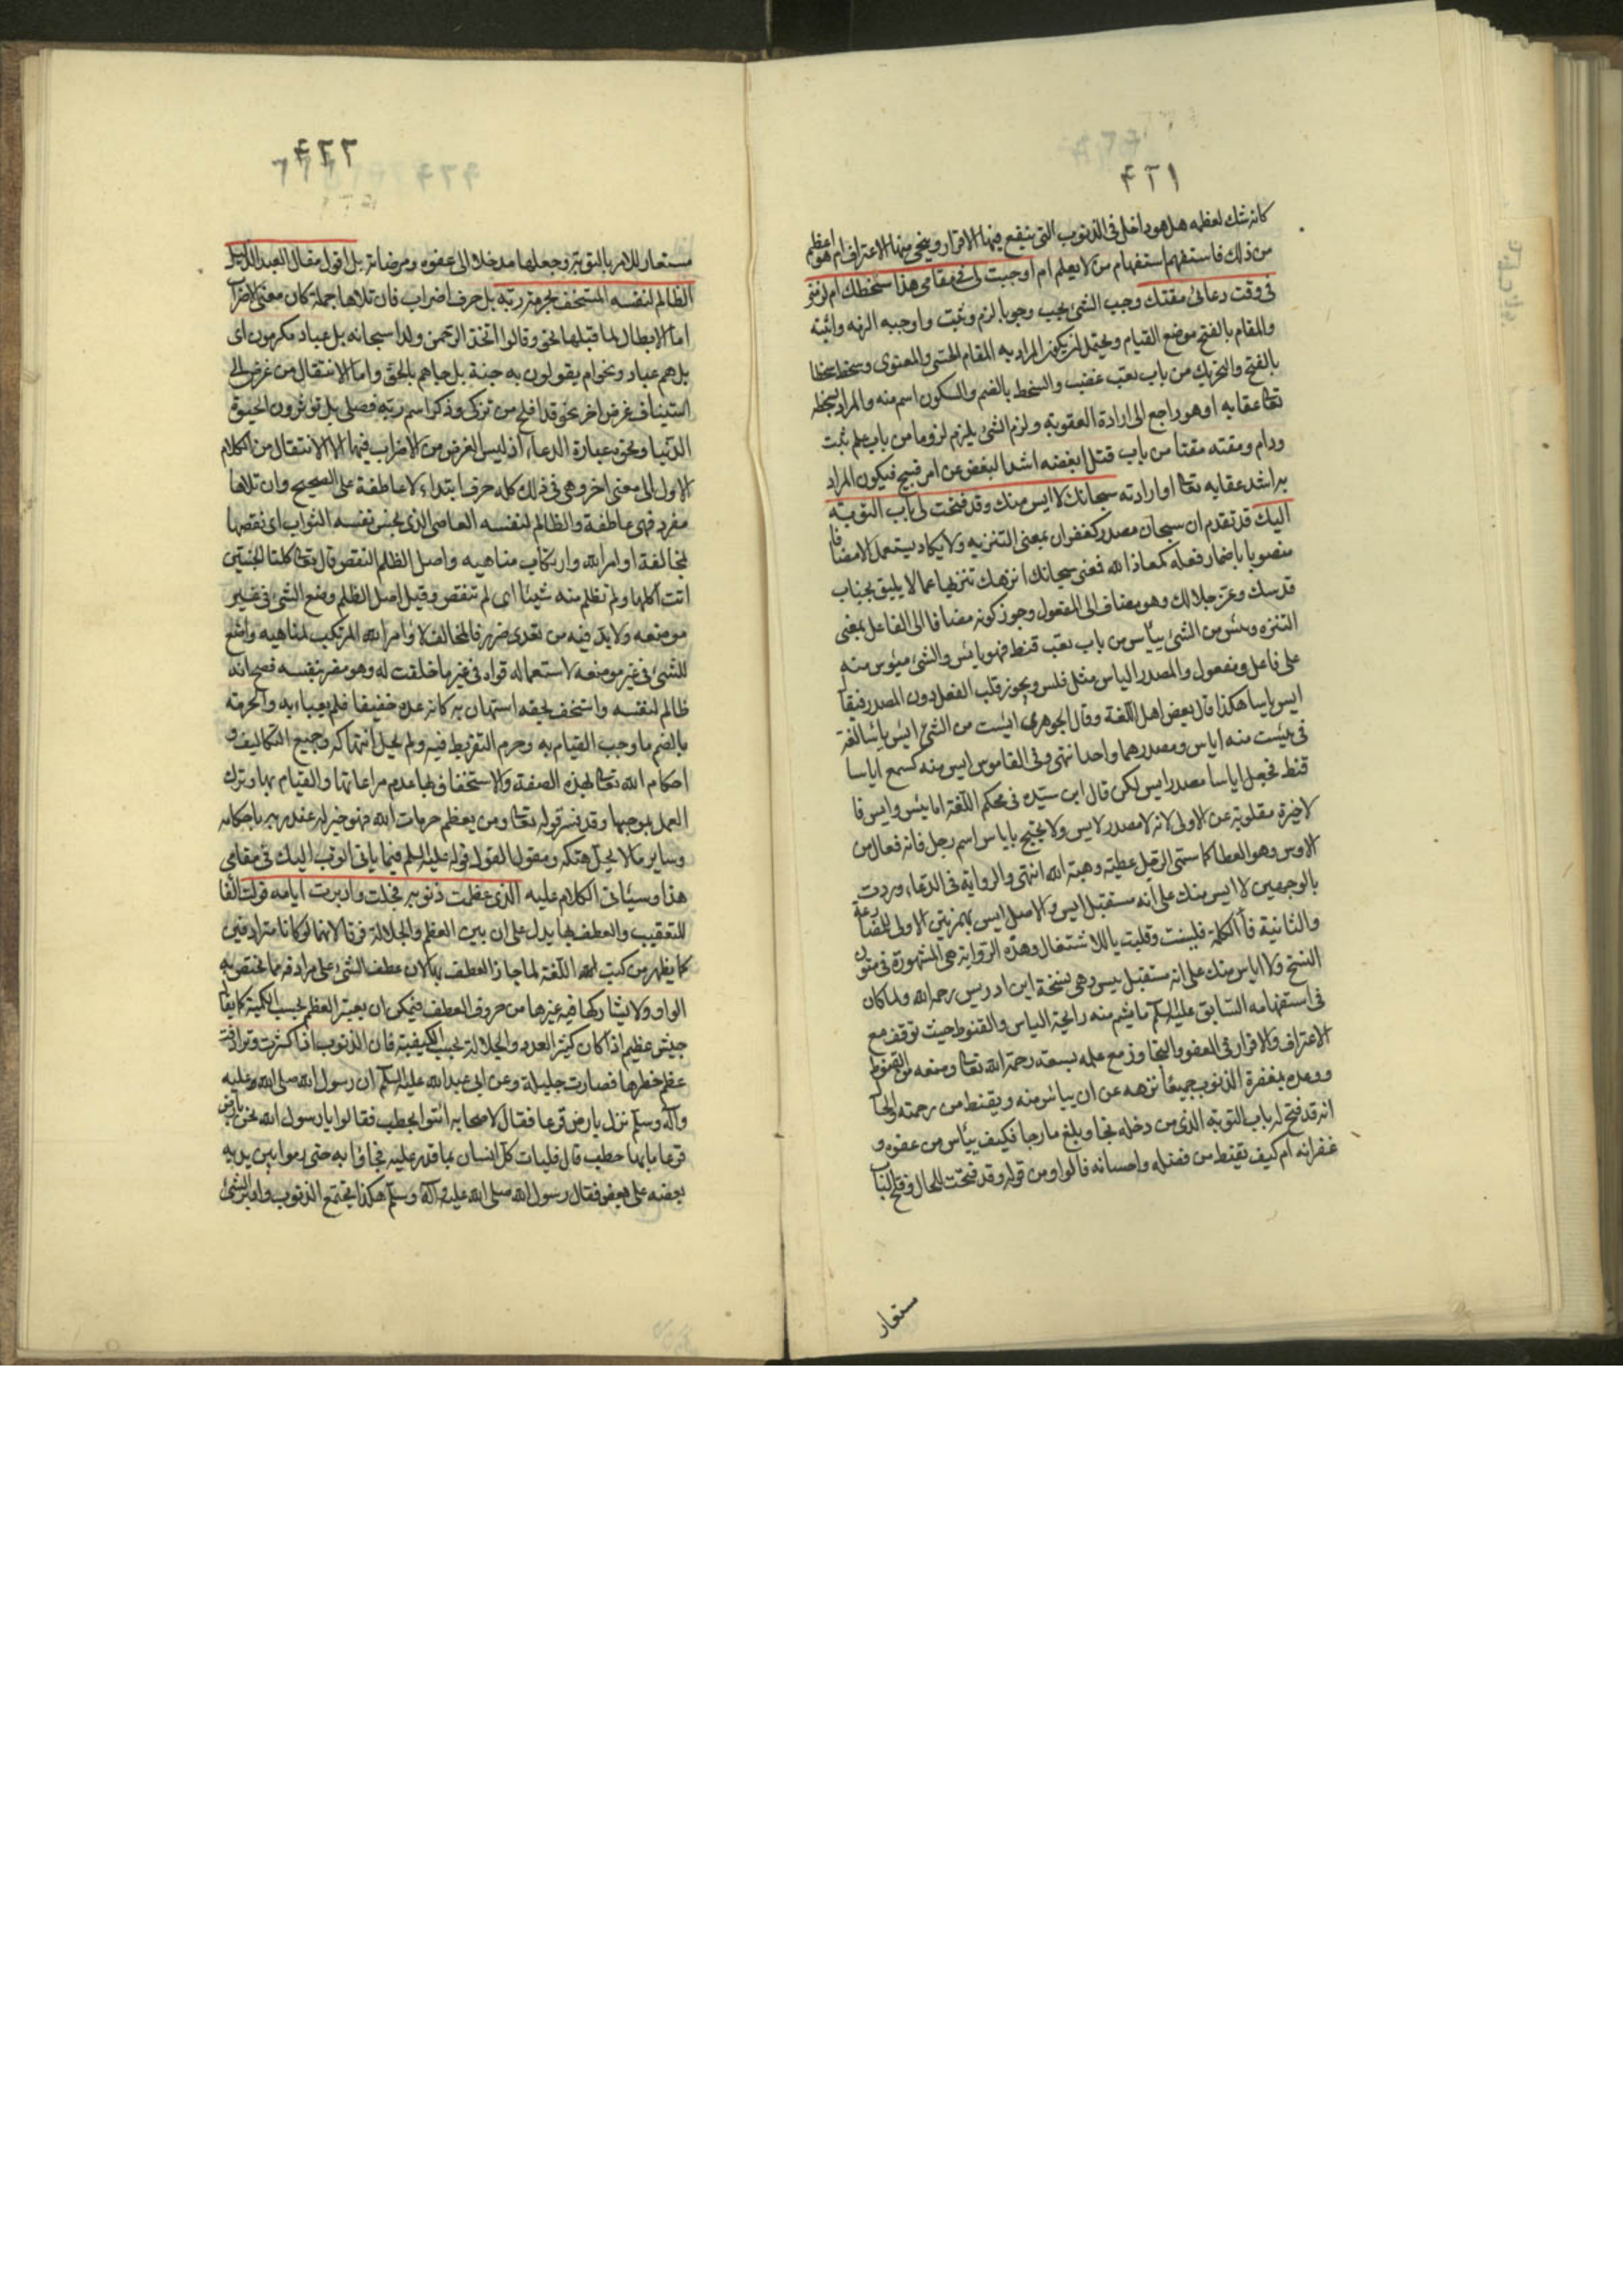 ۴۲۱
كانه شك لعظمه هل هو داخل فى الذنوب التى ينفع فيها الاقرار وينجى منها الاعتراف ام هو اعظم
من ذلك فاستفهم استفهام من لا يعلم ام اوجبت لى فى مقامى هذا سخطك ام لزمنى
فى وقت دعائى مقتك وجب الشئ يجب وجوبا لزم وثبت واوجبه الزمه واثبته
والمقام بالفتح موضع القيام ويحتمل ان يكون المراد به المقام الحسى والمعنوى وسخط سخطا
بالفتح والتحريك من باب تعب غضب والسخط بالضم والسكون اسم منه والمراد بسخطه
تعا عقابه او هو راجع الى ارادة العقوبة ولزم الشئ يلزم لزوما من باب علم ثبت
ودام ومقته مقتا من باب قتل ابغضه اشد البغض عن امر قبيح فيكون المراد
به اشد عقابه تعا او ارادته سبحانك لا ايس منك وقد فتحت لى باب التوبة
اليك قد تقدم ان سبحان مصدر كغفران بمعنى التنزيه ولا يكاد يستعمل الا مضافا
منصوبا باضمار فعله كمعاذ الله فمعنى سبحانك انزهك تنزيها عما لا يليق بجناب
قدسك وعز جلالك وهو مضاف الى المفعول وجوز كونه مضافا الى الفاعل بمعنى
التنزه ويئس من الشئ ييأس من باب تعب قنط فهو يائس والشئ ميئوس منه
على فاعل ومفعول والمصدر الياس مثل فلس ويجوز قلب الفعل دون المصدر فيقا
ايس ياسا هكذا قال بعض اهل اللغة وقال الجوهرى ايست من الشئ ايس يأسا لغة
فى يئست منه اياس ومصدرهما واحد انتهى وفى القاموس ايس منه كسمع اياسا
قنط فجعل اياسا مصدر ايس لكن قال ابن سيده فى محكم اللغة اما يئس وايس فا
لاخيرة مقلوبة عن الاولى لانه لا مصدر لايس ولا يحتج باياس اسم رجل فانه فعال من
الاوس وهو العطا كما سمى الرجل عطية وهبة الله انتهى والرواية فى الدعاء وردت
بالوجهين لا ايس منك على انه مستقبل ايس والاصل ايس بهمزتين الاولى للمضارعة
والثانية فأ الكلمة فلينت وقلبت يا للاشتغال وهذه الرواية هى المشهورة فى متون
النسخ ولا اياس منك على انه مستقبل ييس وهى نسخة ابن ادريس رحمه الله ولما كان
فى استفهامه السابق عليه السلم ما يشم منه رايحة الياس والقنوط حيث توقف مع
الاعتراف والاقرار فى العفو والتجاوز مع علمه بسعة رحمة الله تعا ومنعه من القنوط
ووعده بمغفرة الذنوب جميعا نزهه عن ان ييأس منه ويقنط من رحمته والحا
انه قد فتح له باب التوبة الذى من دخله نجا وبلغ ما رجا فكيف ييأس من عفوه و
غفرانه ام كيف يقنط من فضله واحسانه فالواو من قوله وقد فتحت للحال وفتح البا
مستعار
۴۲۲
مستعار للامر بالتوبة وجعلها مدخلا الى عفوه ومرضاته بل اقول مقال العبد الذليل
الظالم لنفسه المستخف بحرمة ربه بل حرف اضراب فان تلاها جملة كان معنى الاضراب
اما الابطال لما قبلها نحو وقالوا اتخذ الرحمن ولدا سبحانه بل عباد مكرمون اى
بل هم عباد ونحو ام يقولون به جنة بل جاءهم بالحق واما الانتقال من غرض الى
استيناف غرض اخر نحو قد افلح من تزكى وذكر اسم ربه فصلى بل تؤثرون الحيوة
الدنيا ونحوه عبارة الدعاء اذ ليس الغرض من الاضراب فيها الا الانتقال من الكلام
الاول الى معنى اخر وهى فى ذلك كله حرف ابتداء لا عاطفة على الصحيح وان تلاها
مفرد فهى عاطفة والظالم لنفسه العاصى الذى بخس نفسه الثواب اى نقصها
بمخالفة اوامر الله وارتكاب مناهيه واصل الظلم النقص قال تعا كلتا الجنتين
اتت اكلها ولم تظلم منه شيئا اى لم تنقص وقيل اصل الظلم وضع الشئ فى غير
موضعه ولا بد فيه من تعدى ضرر فالمخالف لاوامر الله المرتكب لمناهيه واضع
للشئ فى غير موضعه لاستعماله قواه فى غير ما خلقت له وهو مضر بنفسه فصح انه
ظالم لنفسه واستخف بحقه استهان به كانه عده خفيفا فلم يعباء به والحرمة
بالضم ما وجب القيام به وحرم التفريط فيه ولم يحل انتهاكه وجميع التكاليف و
احكام الله تعا بهذه الصفة والاستخفاف بها عدم مراعاتها والقيام بها وترك
العمل بموجبها وقد فسر قوله تعا ومن يعظم حرمات الله فهو خير له عند ربه باحكامه
وساير ما لا يحل هتكه ومقول القول قوله عليه السلم فيما ياتى اتوب اليك فى مقامى
هذا وسيأتى الكلام عليه الذى عظمت ذنوبه فجلت وادبرت ايامه فولت الفا
للتعقيب والعطف بها يدل على ان بين العظم والجلالة فرقا لانهما لو كانا مترادفين
كما يظهر من كتب اللغة لما جاز العطف بها لان عطف الشئ على مرادفه مما يختص به
الواو ولا يشاركها فيه غيرها من حروف العطف فيمكن ان يعتبر العظم بحسب الكمية كما يقا
جيش عظيم اذا كان كثير العدد والجلالة بحسب الكيفية فان الذنوب اذا كثرت وترادفت
عظم خطرها فصارت جليلة وعن ابى عبد الله عليه السلم ان رسول الله صلى الله عليه
وآله وسلم نزل بارض قرعا فقال لاصحابه ائتوا بحطب فقالوا يا رسول الله نحن بارض
قرعا ما بها حطب قال فليات كل انسان بما قدر عليه فجاؤا به حتى رموا بين يديه
بعضه على بعض فقال رسول الله صلى الله عليه وآله وسلم هكذا يجتمع الذنوب وادبر الشئ